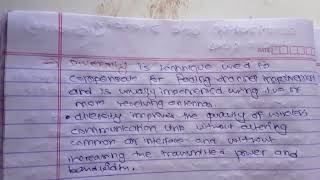 DATE
→ Diversity is technique used to
compensate for fading channel impairments
and is usually implemented using two or
more receiving antennas.
• diversity improves the quality of wireless
communication link without altering
common air interface and without
increasing the transmitted power and
bandwidth.